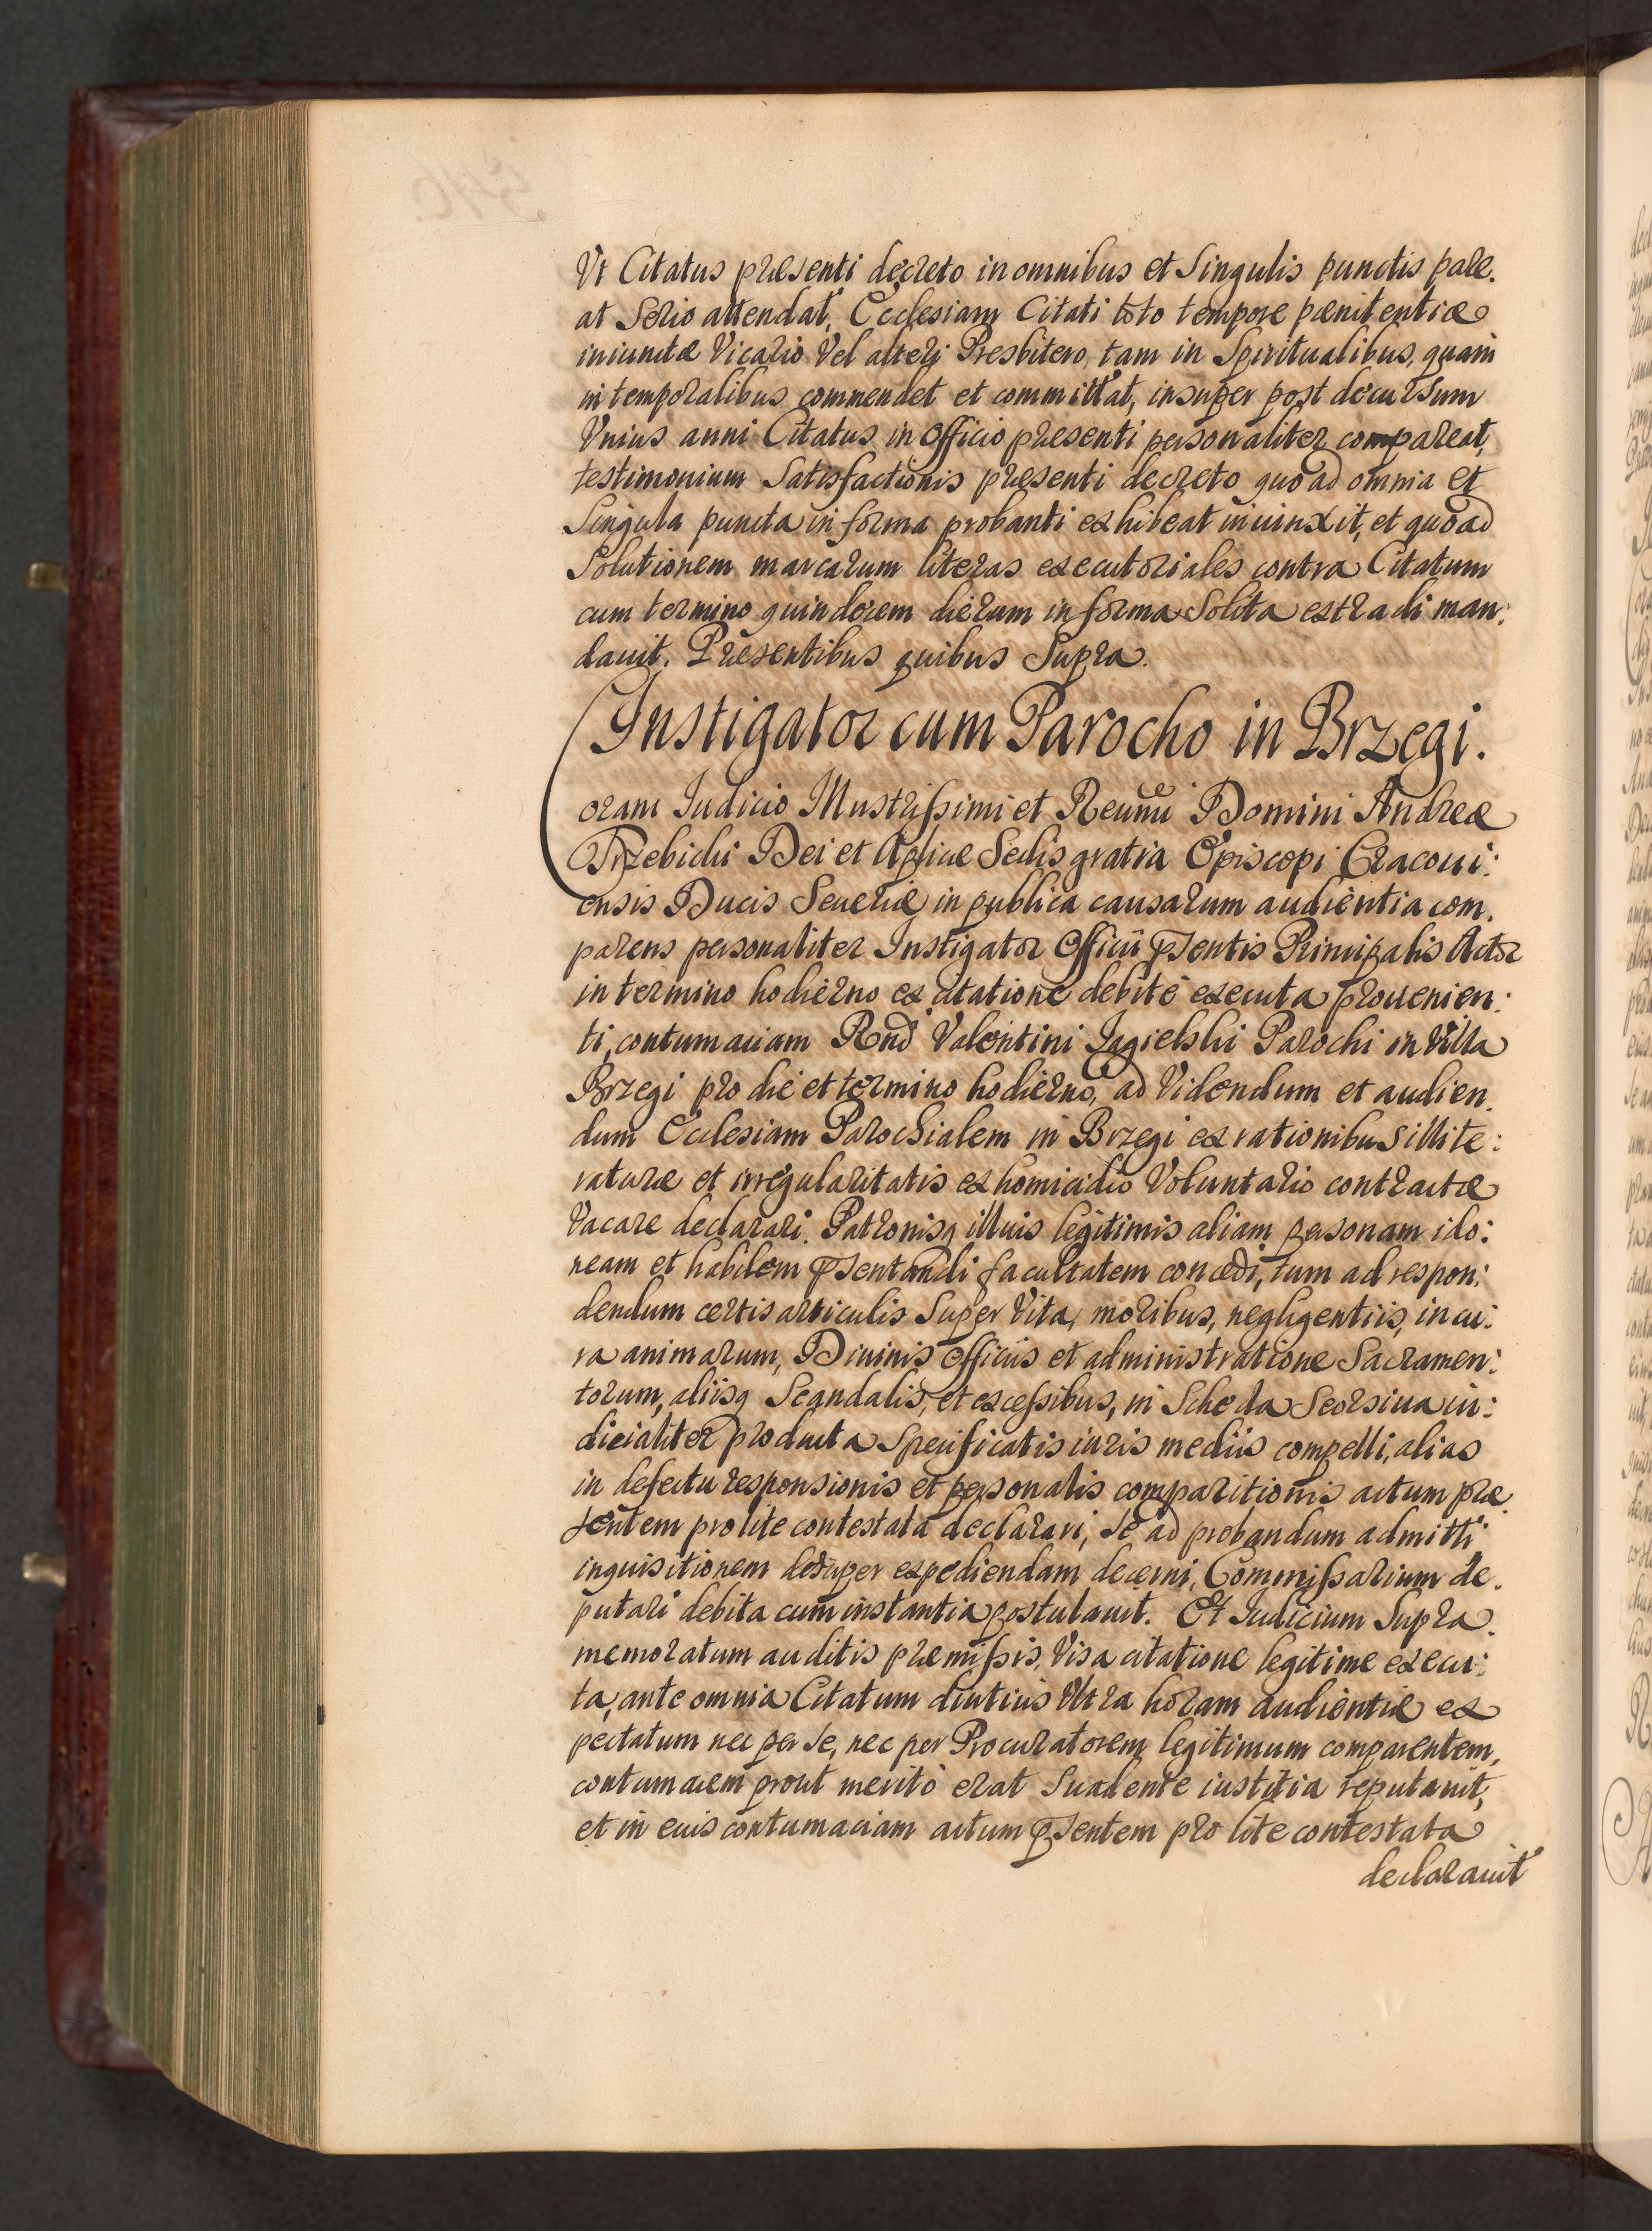 Vt Citatus præsenti decreto in omnibus et Singulis punctis pare.
at Serio attendat, Ecclesiam Citati toto tempore pænitentiæ
iniunctæ Vicario Vel alteri Presbitero, tam in Spiritualibus, quam
in temporalibus commendet et committat, insuper post decursum
Vnius anni Citatus in Officio præsenti personaliter compareat,
testimonium Satisfactionis præsenti decreto quo ad omnia et
Singula puncta in forma probanti exhibeat iniunxit, et quo ad
Solutionem marcarum literas executoriales contra Citatum
cum termino quindecem dierum in forma Solita extradi man:
dauit. Præsentibus quibus Supra.
Instigator cum Parocho in Brzegi.
Coram Iudicio Illustrissimi et Reuñdi Domini Andreæ
Trzebicki Dei et Aplicæ Sedis gratia Episcopi Cracoui:
ensis Ducis Seueriæ in publica causarum audientia com.
parens personaliter Instigator Officii pñsentis Principalis Actor
in termino hodierno ex citatione debite executa prouenien:
ti, contumaciam Rñdi Valentini Jagielski Parochi in Villa
Brzegi pro die et termino hodierno, ad Videndum et audien.
dum Ecclesiam Parochialem in Brzegi ex rationibus illite:
raturæ et irregularitatis ex homicidio Voluntario contractæ
Vacare declarari. Patronisq illius legitimis aliam personam ido:
neam et habilem pñsentandi facultatem concedi, tum ad respon:
dendum certis articulis Super Vita, moribus, negligentiis, in cu:
ra animarum, Diuinis Officiis et administratione Sacramen:
torum, aliisq Scandalis, et excessibus, in Scheda Seorsiua iu:
dicialiter producta Specificatis iuris mediis compelli, alias
in defectu responsionis et personalis comparitionis actum præ
sentem pro lite contestata declarari, Se ad probandum admitti
inquisitionem desuper expediendam decerni, Commissarium de.
putari debita cum instantia postulauit. Et Iudicium Supra.
memoratum auditis præmissis, Visa citatione legitime execu:
ta, ante omnia Citatum diutius Vltra horam audientiæ ex
pectatum nec per Se, nec per Procuratorem legitimum comparentem,
contumacem prout merito erat Suadente iustitia reputauit,
et in eius contumaciam actum pñsentem pro lite contestata
declarauit